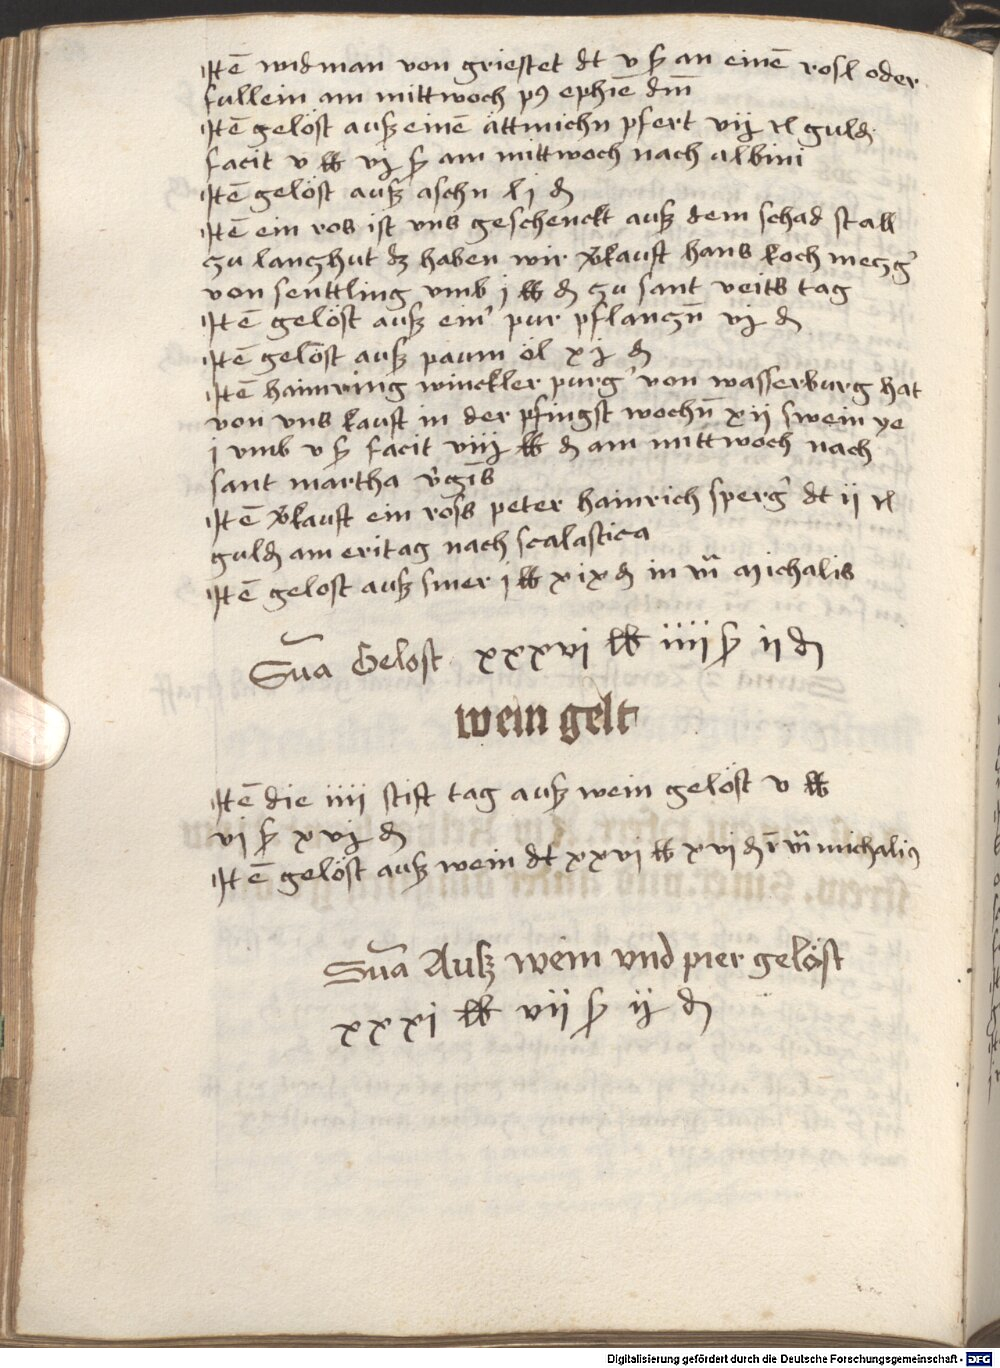 Itē widman von griestet dt v ß an einē rosl oder
fullein am mittwoch p9 ephiē dm̄
Itē gelöst auß einē ättmichn pfert vij rl guldſ
facit v lb vj ß am mittwoch nach albini
Itē gelöst auß aschn lj d
Itē ein ros ist vns geschenckt auß dem schad stall
zu lanczhut dz haben wir v̄kauft hans koch meczg̓
von senttling vmb j lb d zu sant veits tag
Itē gelöst auß ein̓ pur pflanczn̄ vj d
Itē gelöst auß paum öl xj d
Itē hainring winckler purg̓ von wasserburg hat
von vns kauft in der pfingst wochn̄ xii swein ye
j vmb v ß facit viij lb d am mittwoch nach
sant martha v̓gīs
Itē v̄kauft ein ross peter hainrich sperg̓ dt ij rl
guldſ am eritag nach scalastica
Itē gelost auß smer j lb xix d in vi̅ Michalis
Sūa Gelost xxxvi lb iiii ß ij d
wein gelt
Itē die iiii stift tag auß wein gelöst v lb
vi ß xvj d
Itē gelöst auß wein dt xxvi lb xvi d ī vi̅ michalis
Sūa Auß wein vnd pier gelöst
xxxi lb vii ß ij d
Digitalisierung gefördert durch die Deutsche Forschungsgemeinschaft - DFG